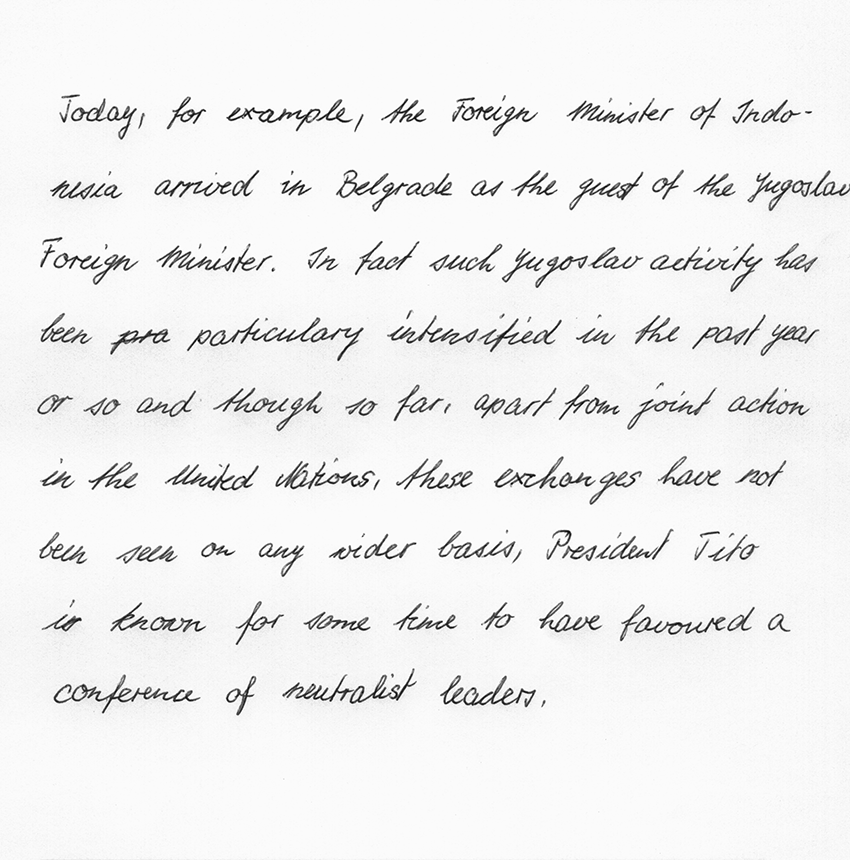 Today, for example, the Foreign Minister of Indo-
nesia arrived in Belgrade as the guest of the Yugoslav
Foreign Minister. In fact such Yugoslav activity has
been pra particulary intensified in the past year
or so and though so far, apart from joint action
in the United Nations, these exchanges have not
been seen on any wider basis, President Tito
is known for some time to have favoured a
conference of neutralist leaders.